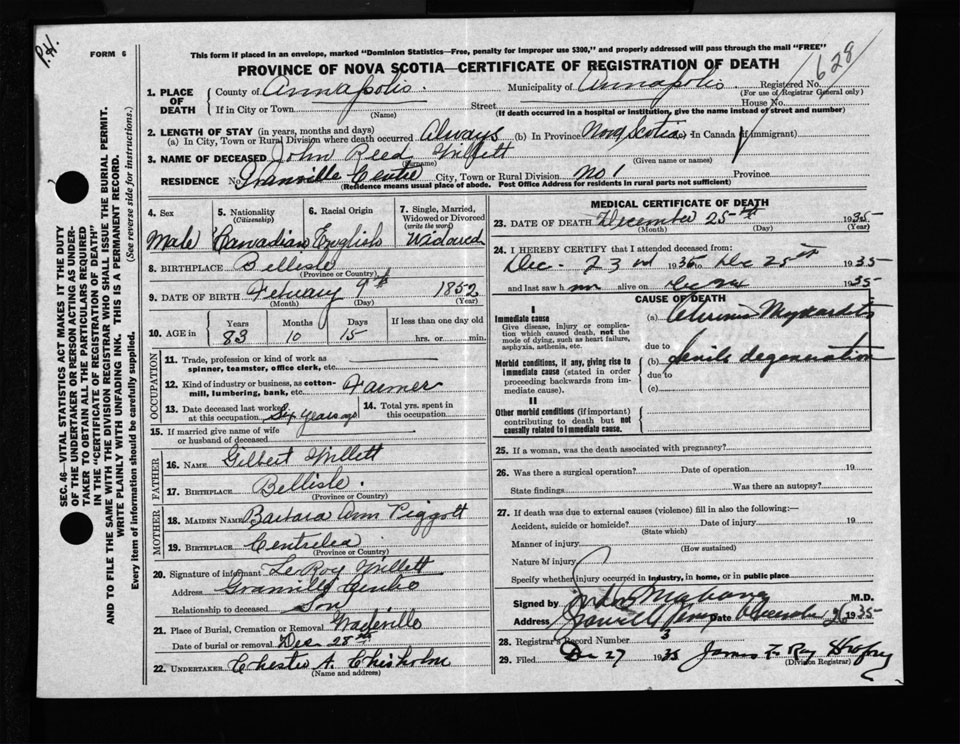 P.H.
FORM 6
This form if placed in an envelope, marked "Dominion Statistics—Free, penalty for improper use $300," and properly addressed will pass through the mail "FREE"
628
PROVINCE OF NOVA SCOTIA—CERTIFICATE OF REGISTRATION OF DEATH
1. PLACE OF DEATH
County of Annapolis.
Municipality of Annapolis.
Registered No.
(For use of Registrar General only)
If in City or Town
(Name)
Street
House No.
(If death occurred in a hospital or institution, give the name instead of street and number)
2. LENGTH OF STAY (in years, months and days)
(a) In City, Town or Rural Division where death occurred Always (b) In Province Nova Scotia (c) In Canada (if immigrant)
3. NAME OF DECEASED John Reed Willett
(Surname)
(Given name or names)
RESIDENCE No. Granville Centre City, Town or Rural Division No 1 Province
(Residence means usual place of abode. Post Office Address for residents in rural parts not sufficient)
4. Sex
Male
5. Nationality
(Citizenship)
Canadian
6. Racial Origin
English
7. Single, Married, Widowed or Divorced
(write the word)
Widowed
8. BIRTHPLACE Bellisle
(Province or Country)
9. DATE OF BIRTH February 9th 1852
(Month) (Day) (Year)
10. AGE in
Years Months Days If less than one day old
83 10 15 hrs. or min.
OCCUPATION
11. Trade, profession or kind of work as
spinner, teamster, office clerk, etc.
12. Kind of industry or business, as cotton-
mill, lumbering, bank, etc. Farmer
13. Date deceased last worked
at this occupation Six years ago
14. Total yrs. spent in
this occupation
15. If married give name of wife
or husband of deceased
FATHER
16. NAME Gilbert Willett
17. BIRTHPLACE Bellisle.
(Province or Country)
MOTHER
18. MAIDEN NAME Barbara Ann Piggott
19. BIRTHPLACE Centrelea
(Province or Country)
20. Signature of informant LeRoy Willett
Address Granville Centre
Relationship to deceased Son
21. Place of Burial, Cremation or Removal
Date of burial or removal Dec 28th
22. UNDERTAKER Chester A. Chisholm
(Name and address)
MEDICAL CERTIFICATE OF DEATH
23. DATE OF DEATH December 25th 1935
(Month) (Day) (Year)
24. I HEREBY CERTIFY that I attended deceased from:
Dec. 23rd 1935 to Dec 25th 1935
and last saw him alive on Dec 1935
CAUSE OF DEATH
I
Immediate cause
Give disease, injury or complica-
tion which caused death, not the
mode of dying, such as heart failure,
asphyxia, asthenia, etc.
(a) Chronic Myocarditis
due to
Morbid conditions, if any, giving rise to
immediate cause (stated in order
proceeding backwards from im-
mediate cause).
(b) Senile degeneration
due to
(c)
II
Other morbid conditions (if important)
contributing to death but not
causally related to immediate cause.
25. If a woman, was the death associated with pregnancy?
26. Was there a surgical operation? Date of operation 19
State findings Was there an autopsy?
27. If death was due to external causes (violence) fill in also the following:—
Accident, suicide or homicide? Date of injury 19
(State which)
Manner of injury
(How sustained)
Nature of injury
Specify whether injury occurred in industry, in home, or in public place
Signed by M.D.
Address Date December 26 1935
28. Registrar's Record Number 3
29. Filed Dec 27 1935 James
(Division Registrar)
SEC. 46—VITAL STATISTICS ACT MAKES IT THE DUTY
OF THE UNDERTAKER OR PERSON ACTING AS UNDER-
TAKER TO OBTAIN ALL THE PARTICULARS REQUIRED
IN THE "CERTIFICATE OF REGISTRATION OF DEATH"
AND TO FILE THE SAME WITH THE DIVISION REGISTRAR WHO SHALL ISSUE THE BURIAL PERMIT.
WRITE PLAINLY WITH UNFADING INK. THIS IS A PERMANENT RECORD.
Every item of information should be carefully supplied. (See reverse side for instructions.)